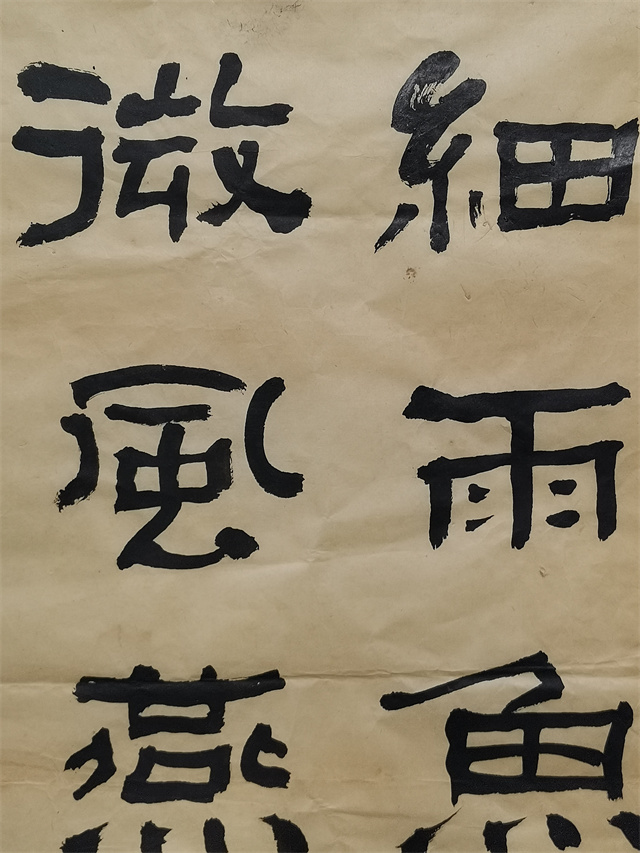 細雨魚
微風燕